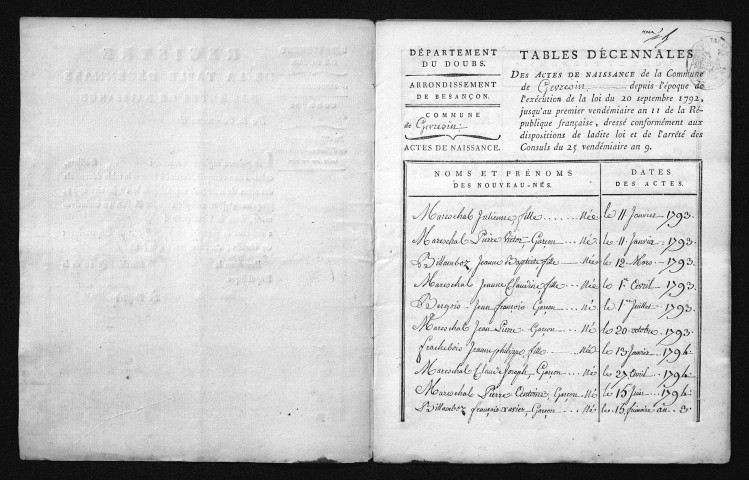 DÉPARTEMENT
DU DOUBS.
ARRONDISSEMENT
DE BESANÇON.
COMMUNE
de Gevresin
ACTES DE NAISSANCE.
TABLES DÉCENNALES
DES ACTES DE NAISSANCE de la Commune
de Gevresin depuis l'époque de
l'exécution de la loi du 20 septembre 1792,
jusqu'au premier vendémiaire an 11 de la Ré-
publique française, dressé conformément aux
dispositions de ladite loi et de l'arrêté des
Consuls du 25 vendémiaire an 9.
NOMS ET PRÉNOMS
DES NOUVEAU-NÉS.
DATES
DES ACTES.
Mareschal Julienne, fille née le 11 Janvier 1793.
Mareschal Pierre Victor, Garçon né le 11 Janvier 1793.
Billamboz Jeanne Baptiste fille née le 12 Mars 1793.
Mareschal Jeanne Claudine, fille née le 1er Avril 1793.
Jean françois Garçon né le 1er Juillet 1793.
Mareschal Jean Pierre Garçon né le 20 octobre 1793.
Jeanne philippe, fille née le 13 Janvier 1794.
Mareschal Claude Joseph, Garçon né le 27 Avril 1794.
Mareschal Pierre Antoine, Garçon né le 15 Juin 1794.
Billamboz françois Xavier, Garçon né le 15 frimaire an 3.